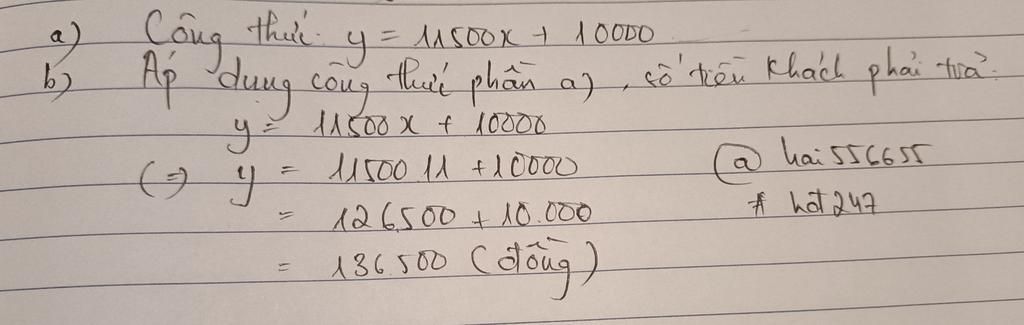 a) Công thức: y = 11500x + 10000
b) Áp dụng công thức phần a), số tiền khách phải trả:
y = 11500x + 10000
(=) y = 11500.11 + 10000
@ hai556655
= 126.500 + 10.000
# hot247
= 136.500 (đồng)